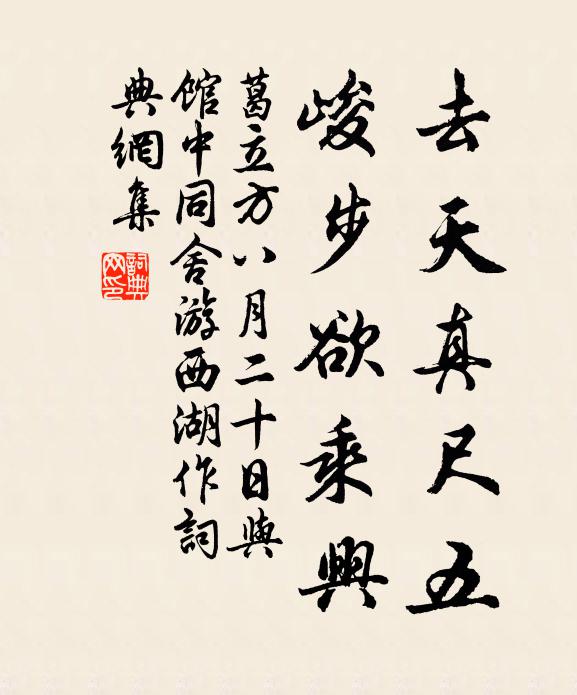 去天真尺五
峻步欲乘興
葛立方八月二十日與
館中同舍游西湖作詞
典網集
詞典网印